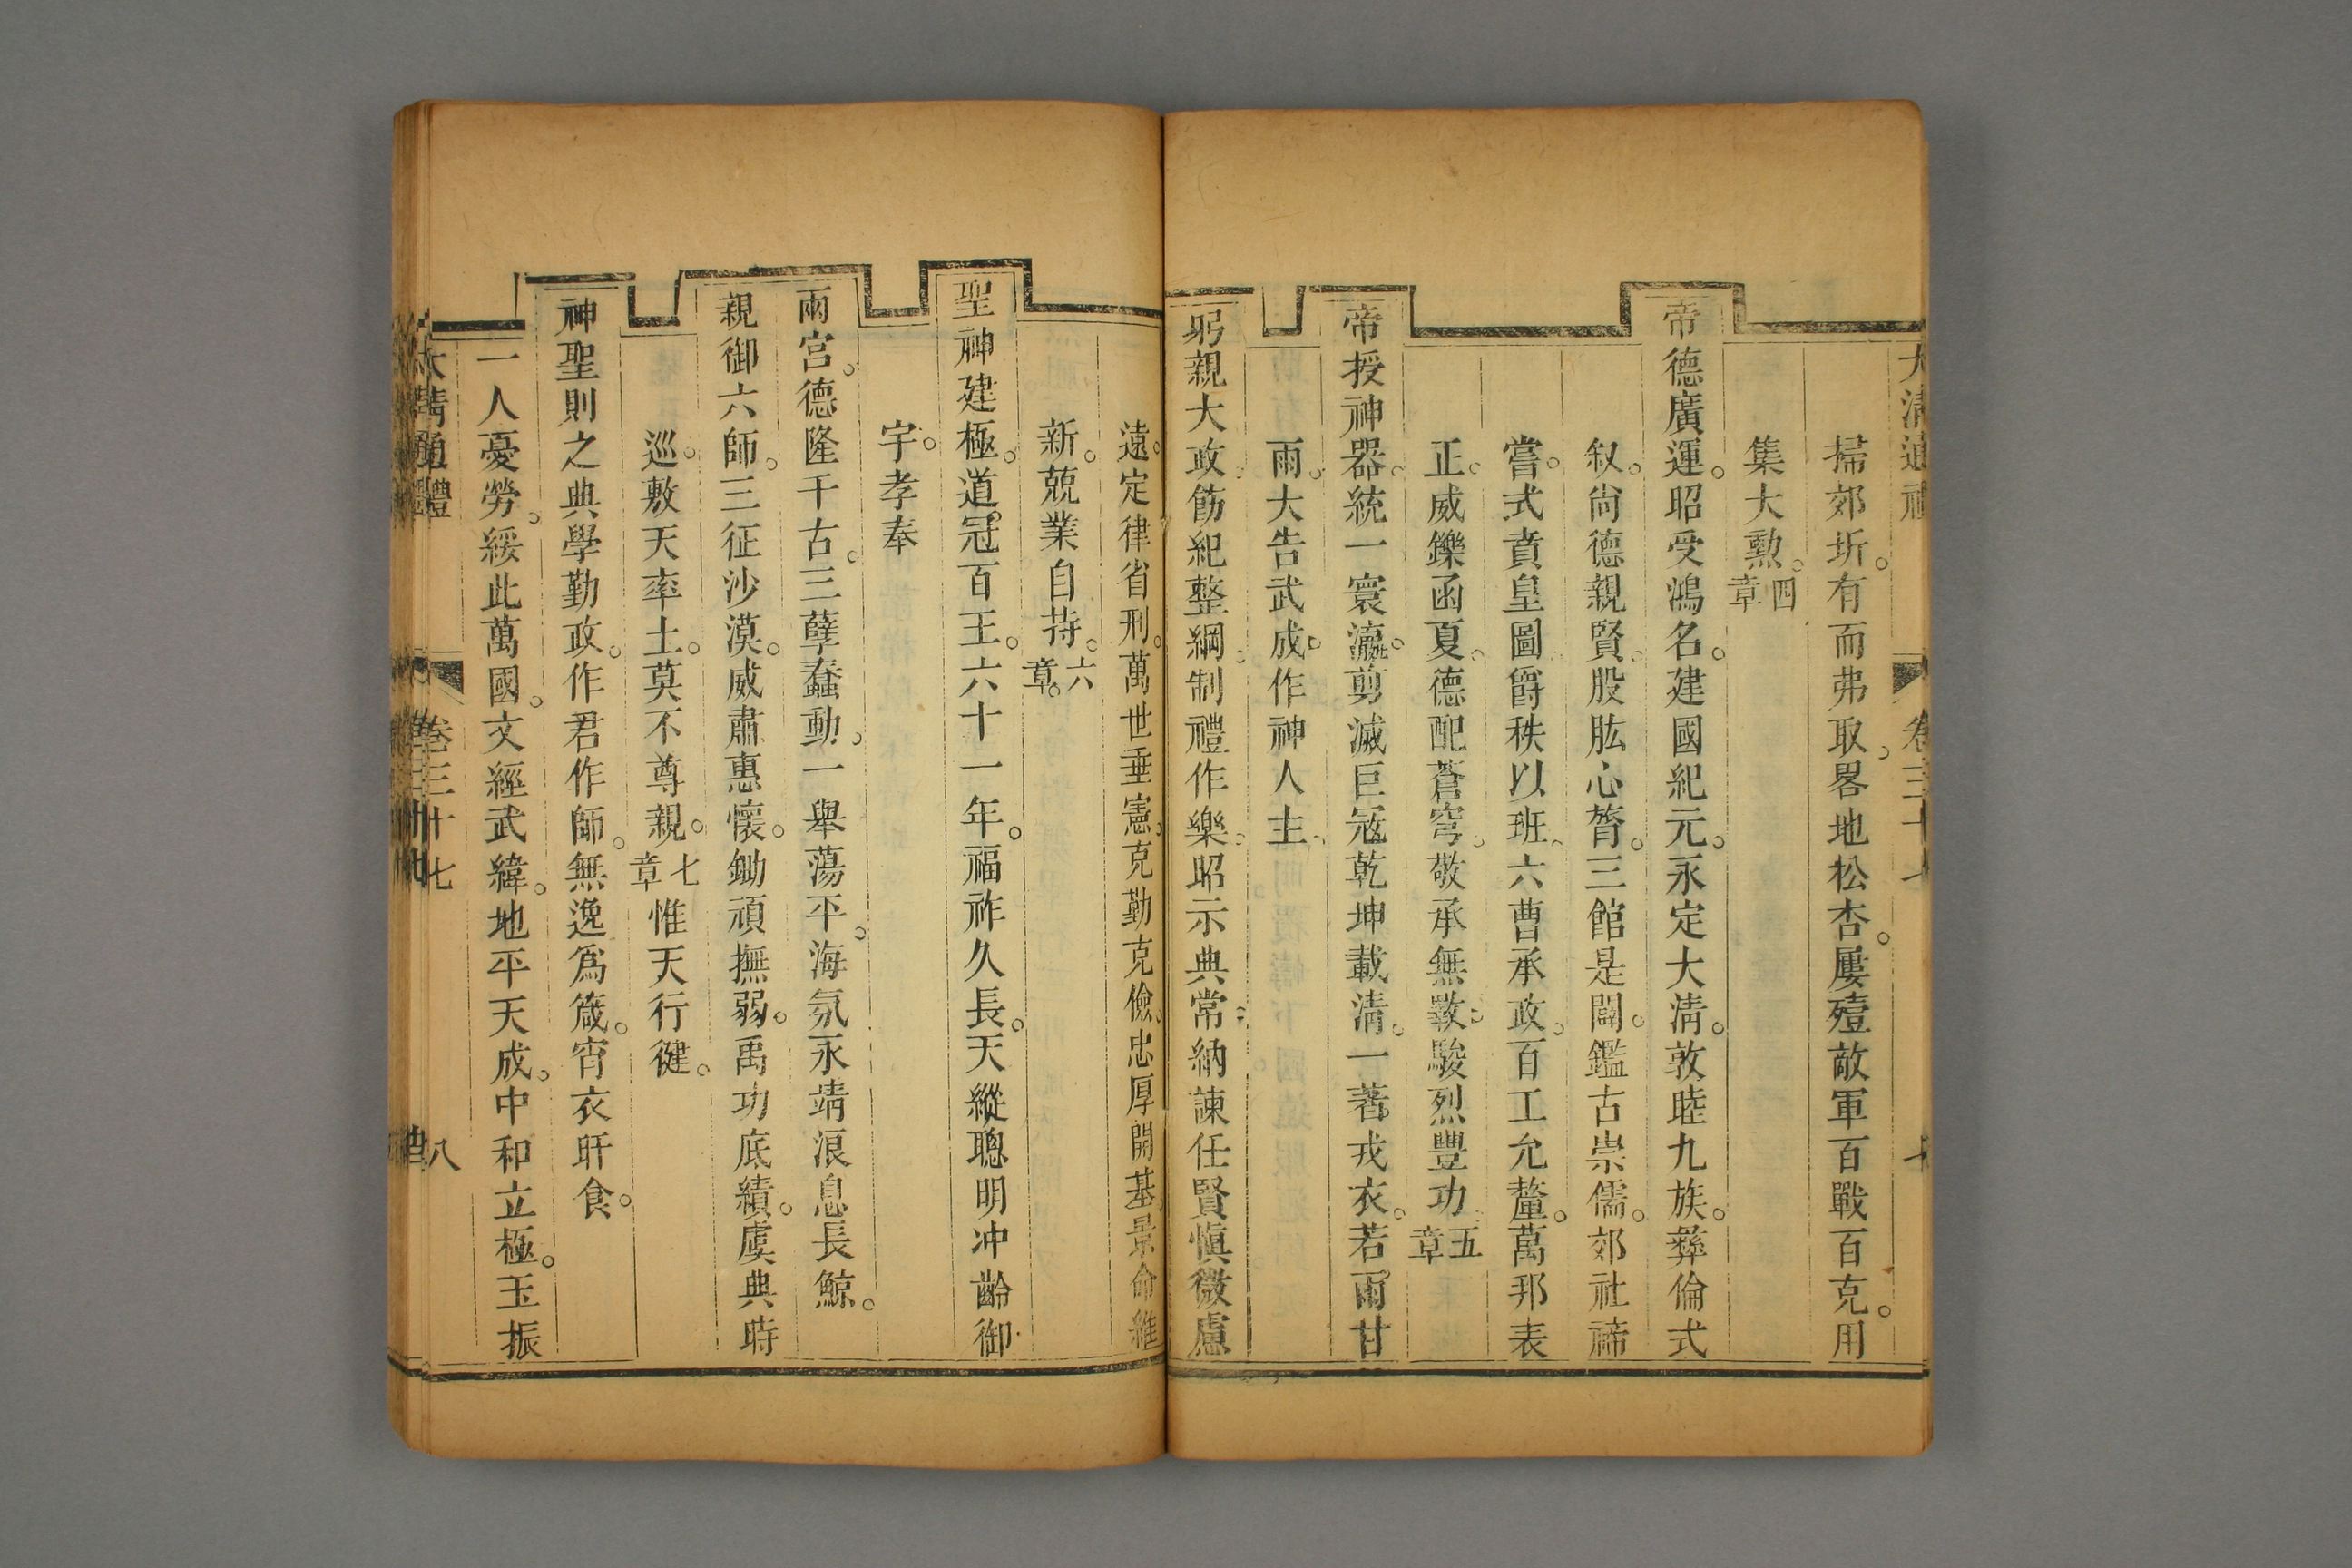 大清通禮 卷三十七 七
掃郊圻。有而弗取。畧地松杏。屢殪敵軍百戰百克。用
集大勲。四章
帝德廣運。昭受鴻名。建國紀元。永定大清。敦睦九族。彝倫式
叙。尚德親賢。股肱心膂。三館是闢。鑑古崇儒。郊社禘
嘗。式賁皇圖。爵秩以班。六曹承政。百工允釐。萬邦表
正。威鑠函夏。德配蒼穹。敬承無斁。駿烈豐功。五章
帝授神器。統一寰瀛。剪滅巨寇。乾坤載清。一著戎衣。若雨甘
雨。大告武成。作神人主。
躬親大政。飭紀整綱。制禮作樂。昭示典常。納諫任賢。慎微慮
遠。定律省刑。萬世垂憲。克勤克儉。忠厚開基。景命維
新。兢業自持。六章。
聖神建極。道冠百王。六十一年。福祚久長。天縱聰明。冲齡御
宇。孝奉
兩宮。德隆千古。三孽蠢動。一舉蕩平。海氛永靖。浪息長鯨。
親御六師。三征沙漠。威肅惠懷。鋤頑撫弱。禹功底績。虞典時
巡。敷天率土。莫不尊親。七章 惟天行健。
神聖則之。典學勤政。作君作師。無逸爲箴。宵衣旰食。
一人憂勞。綏此萬國。文經武緯。地平天成。中和立極。玉振
大清通禮 卷三十七 八